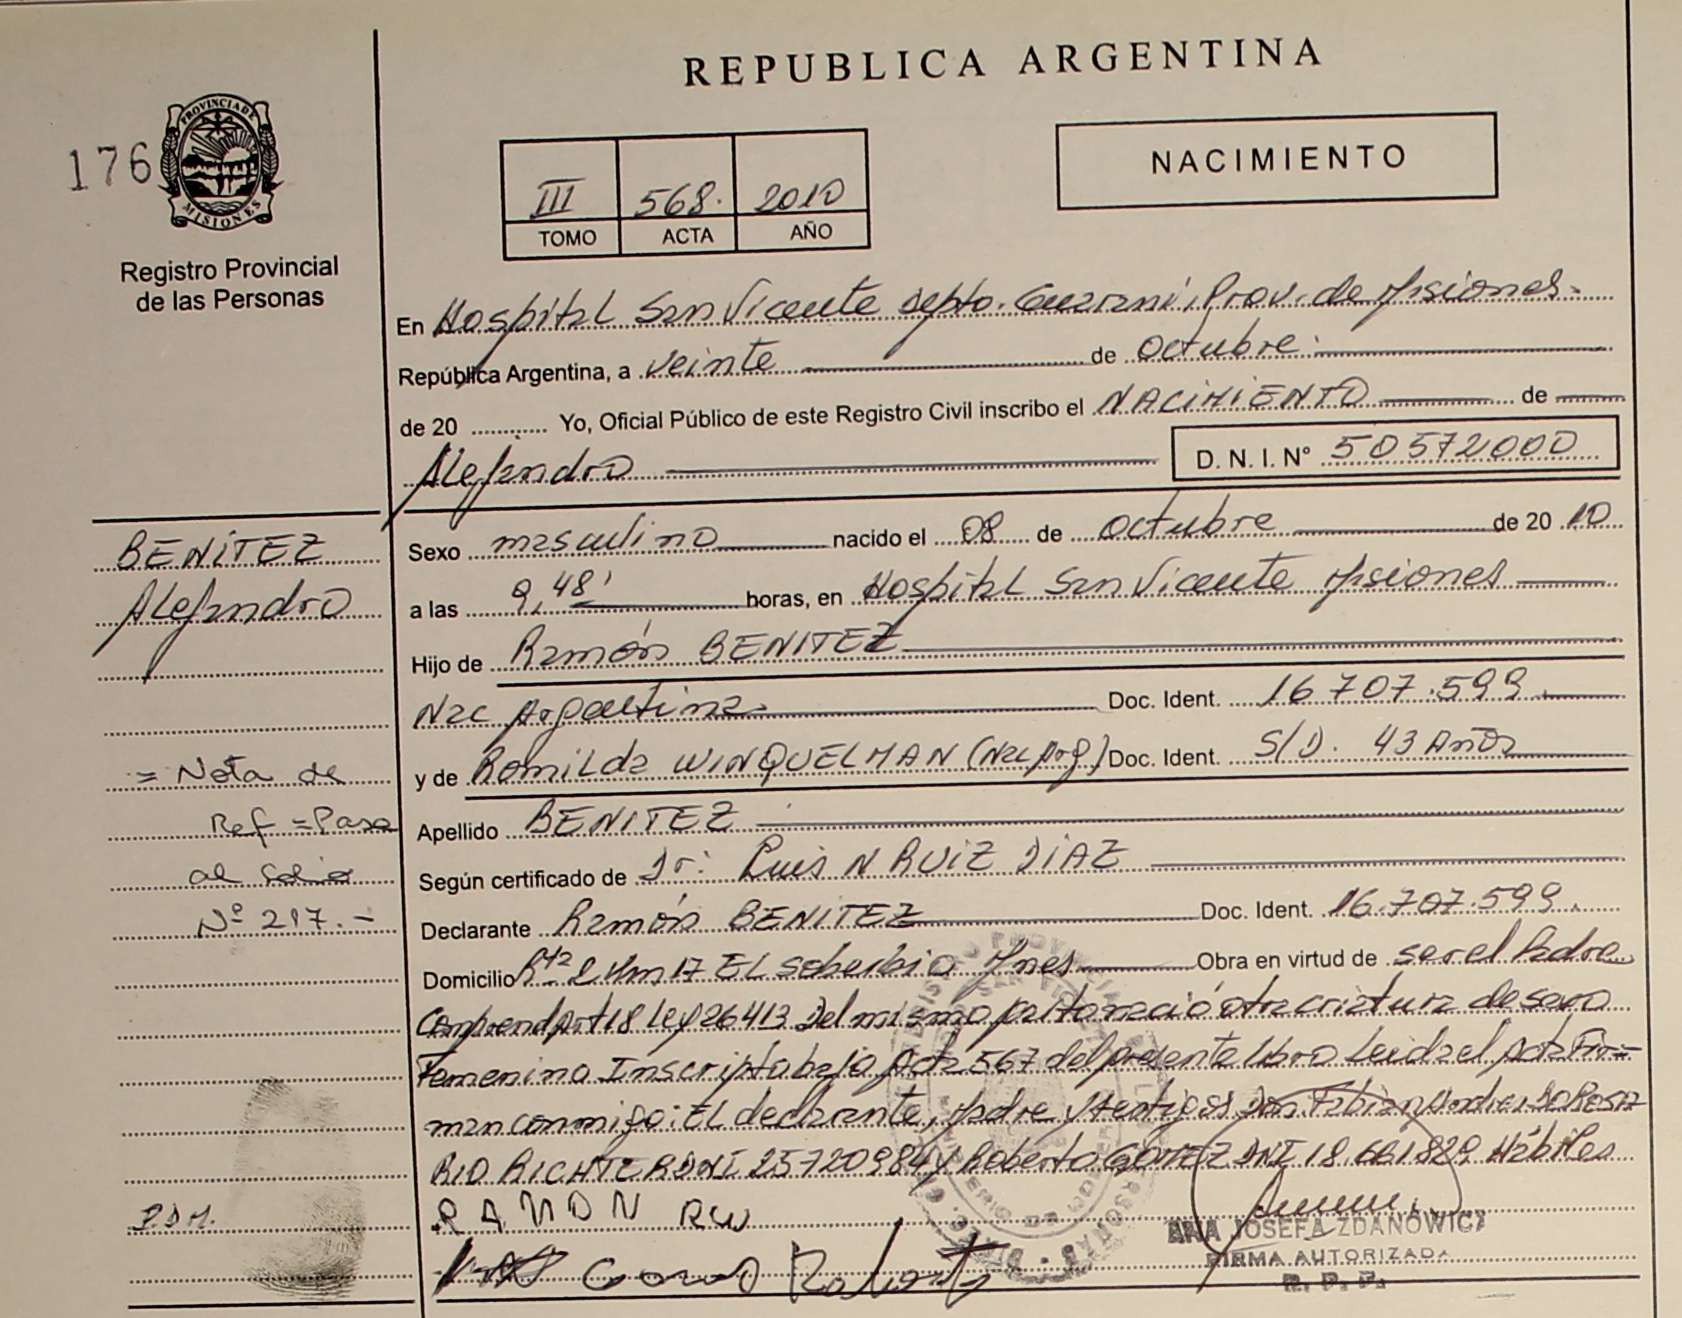 REPUBLICA ARGENTINA
176
PROVINCIA DE
MISIONES
Registro Provincial
de las Personas
III 568. 2010
TOMO ACTA AÑO
NACIMIENTO
En Hospital San Vicente Depto. Guaraní, Prov. de Misiones.
República Argentina, a veinte de octubre
de 20 ......... Yo, Oficial Público de este Registro Civil inscribo el NACIMIENTO de
Alejandro D. N. I. N° 50572000
BENITEZ
Alejandro
= Nota de
Ref = Pasa
al folio
Nº 217.-
P.D.M.
Sexo masculino nacido el 08 de octubre de 20 10
a las 9,48' horas, en Hospital San Vicente Misiones
Hijo de Ramón BENITEZ
Nac Argentina Doc. Ident. 16.707.599
y de Romilda WINQUELMAN (Nac Arg) Doc. Ident. S/D. 43 Años
Apellido BENITEZ
Según certificado de Dr: Luis N RUIZ DIAZ
Declarante Ramón BENITEZ Doc. Ident. 16.707.599
Domicilio Rta 2 Km 17 EL Soberbio Mnes Obra en virtud de ser el Padre
Comprend Art 18 Ley 26413 Del mismo parto nació otra criatura de sexo
Femenino Inscripta bajo Acta 567 del presente libro Leida el Acta Fir=
man conmigo: El declarante, Madre y testigos Don Fabian DA ROSA
RIO RICHTER DNI 25720984 y Roberto GOMEZ DNI 18.661.829 Hábiles
RAMON RW
Roberto
ANA JOSEFA ZDANOWICZ
FIRMA AUTORIZADA
R. P. P.